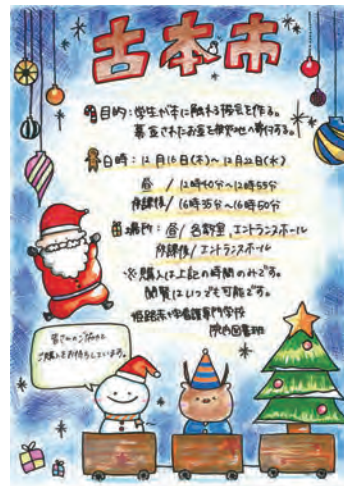 古本市
目的：学生が本に触れる機会を作る。
募金されたお金を被災地へ寄付する。
日時：12月16日(木)～12月22日(水)
昼 / 12時40分～12時55分
放課後 / 16時35分～16時50分
場所：昼 / 各教室、エントランスホール
放課後 / エントランスホール
※購入は上記の時間のみです。
閲覧はいつでも可能です。
姫路赤十字看護専門学校
図書班
皆さんのご協力と
ご購入をお待ちしています。